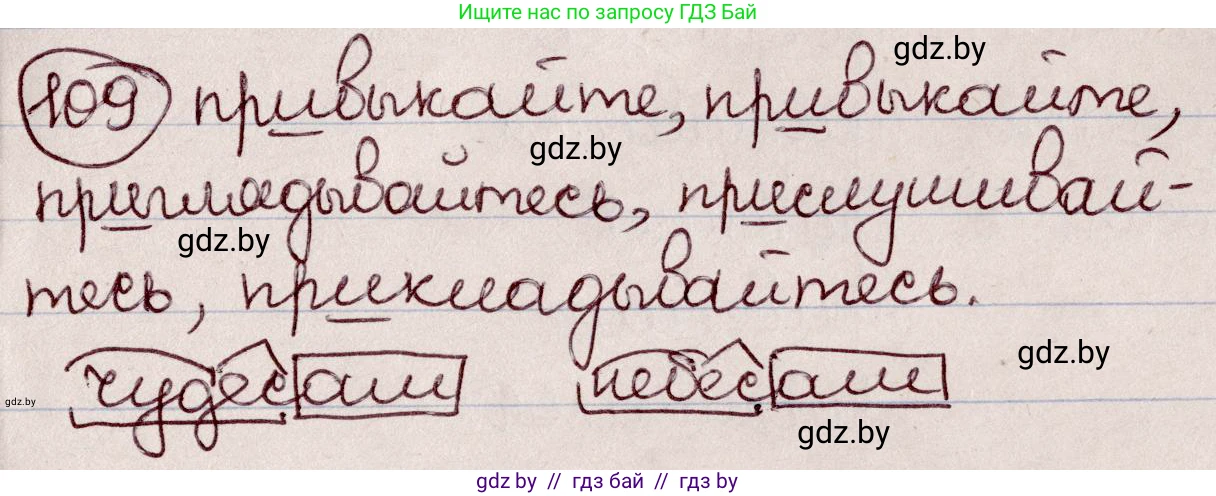 Ищите нас по запросу ГДЗ Бай
gdz.by
109 привыкайте, привыкайте,
gdz.by
приглядывайтесь, прислушивай-
gdz.by
тесь, прикладывайтесь.
gdz.by
чудесам небесам
gdz.by
gdz.by
gdz.by // гдз бай // гдз by